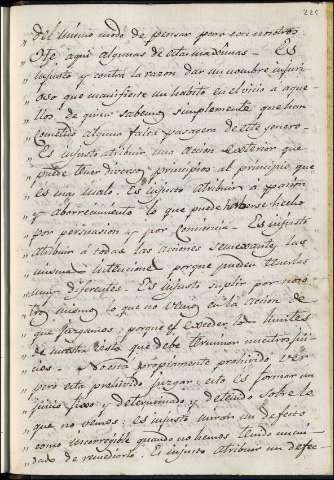 225
" del mismo modo de pensar para con nosotros
" He aqui algunas de estas maximas — Es
" injusto y contra la razon dar un nombre injuri
" oso que manifieste un habito en el vicio a aque
" llos de quien sabemos simplemente que han
" cometido alguna falta pasagera de este genero —
" Es injusto atribuir una accion exterior que
" puede tener diversos principios al principio que
" es mas malo: Es injusto atribuir a pasion
" y aborrecimiento lo que puede haberse hecho
" por persuasion y por conciencia — Es injusto
" atribuir á todas las acciones semejantes, las
" mismas intenciones porque pueden tenerlas
" muy diferentes — Es injusto suplir por noso
" tros mismos lo que no vemos en la accion de
" que juzgamos: porque es exceder los limites
" de nuestra vista que debe terminar nuestros jui
" cios — No está propiamente prohibido ver
" pero está prohibido juzgar, esto es formar un
" juicio fixo y determinado y detenido sobre lo
" que no vemos: es injusto mirar un defecto
" como incorregible quando no hemos tenido nece
" dad de remediarlo. Es injusto atribuir un defec